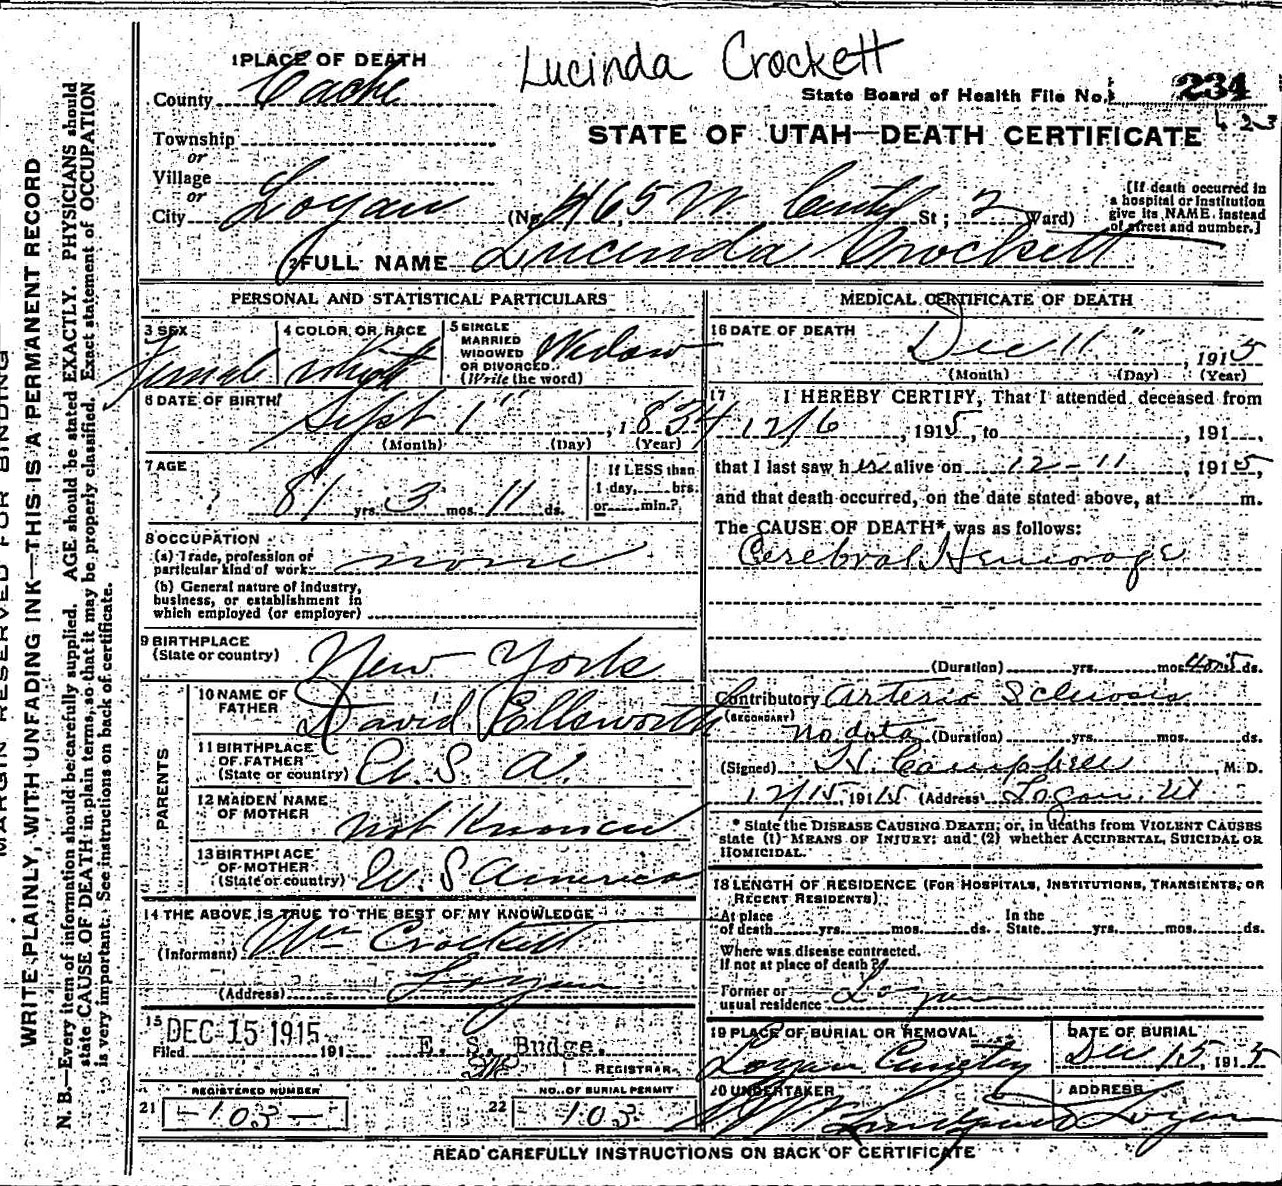 Lucinda Crockett
1 PLACE OF DEATH
County Cache
State Board of Health File No. 234
423
Township
or
Village
or
City Logan
STATE OF UTAH—DEATH CERTIFICATE
(No. 465 W St; 2 Ward)
[If death occurred in
a hospital or institution
give its NAME instead
of street and number.]
2 FULL NAME Lucinda Crockett
PERSONAL AND STATISTICAL PARTICULARS
3 SEX
Female
4 COLOR OR RACE
White
5 SINGLE
MARRIED
WIDOWED
OR DIVORCED
(Write the word)
Widow
6 DATE OF BIRTH
Sept 1", 1834
(Month) (Day) (Year)
7 AGE
81 yrs. 3 mos. 11 ds.
If LESS than
1 day, hrs.
or min.?
8 OCCUPATION
(a) Trade, profession or
particular kind of work none
(b) General nature of industry,
business, or establishment in
which employed (or employer)
9 BIRTHPLACE
(State or country) New York
PARENTS
10 NAME OF
FATHER David Ellsworth
11 BIRTHPLACE
OF FATHER
(State or country) U. S. A.
12 MAIDEN NAME
OF MOTHER not Known
13 BIRTHPLACE
OF MOTHER
(State or country) U. S America
14 THE ABOVE IS TRUE TO THE BEST OF MY KNOWLEDGE
(Informant) Wm Crockett
(Address) Logan
15 DEC 15 1915
Filed 191 E. S. Budge.
REGISTRAR
21 REGISTERED NUMBER
-103-
22 NO. OF BURIAL PERMIT
103
MEDICAL CERTIFICATE OF DEATH
16 DATE OF DEATH
Dec 11", 1915
(Month) (Day) (Year)
17 I HEREBY CERTIFY, That I attended deceased from
12/6, 1915, to , 191 ,
that I last saw her alive on 12-11, 1915,
and that death occurred, on the date stated above, at m.
The CAUSE OF DEATH* was as follows:
Cerebral Hemorage
(Duration) yrs. mos. ds.
Contributory Arterio Sclerosis
(SECONDARY)
no data (Duration) yrs. mos. ds.
(Signed) H. Campbell, M. D.
12/15, 1915 (Address) Logan, Ut
* State the DISEASE CAUSING DEATH; or, in deaths from VIOLENT CAUSES
state (1) MEANS OF INJURY; and (2) whether ACCIDENTAL, SUICIDAL OR
HOMICIDAL.
18 LENGTH OF RESIDENCE (FOR HOSPITALS, INSTITUTIONS, TRANSIENTS, OR
RECENT RESIDENTS)
At place
of death yrs. mos. ds.
In the
State yrs. mos. ds.
Where was disease contracted.
If not at place of death?
Former or
usual residence Logan
19 PLACE OF BURIAL OR REMOVAL
Logan Cemetery
DATE OF BURIAL
Dec 15, 1915
20 UNDERTAKER
ADDRESS
Logan
READ CAREFULLY INSTRUCTIONS ON BACK OF CERTIFICATE
MARGIN RESERVED FOR BINDING
WRITE PLAINLY, WITH UNFADING INK—THIS IS A PERMANENT RECORD
N. B.—Every item of information should be carefully supplied. AGE should be stated EXACTLY. PHYSICIANS should
state CAUSE OF DEATH in plain terms, so that it may be properly classified. Exact statement of OCCUPATION
is very important. See instructions on back of certificate.